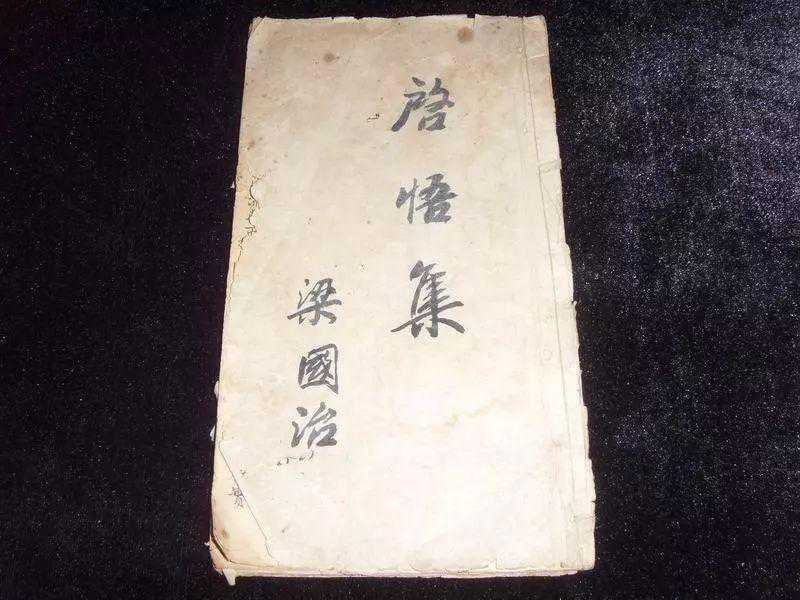 啓悟集
梁國治